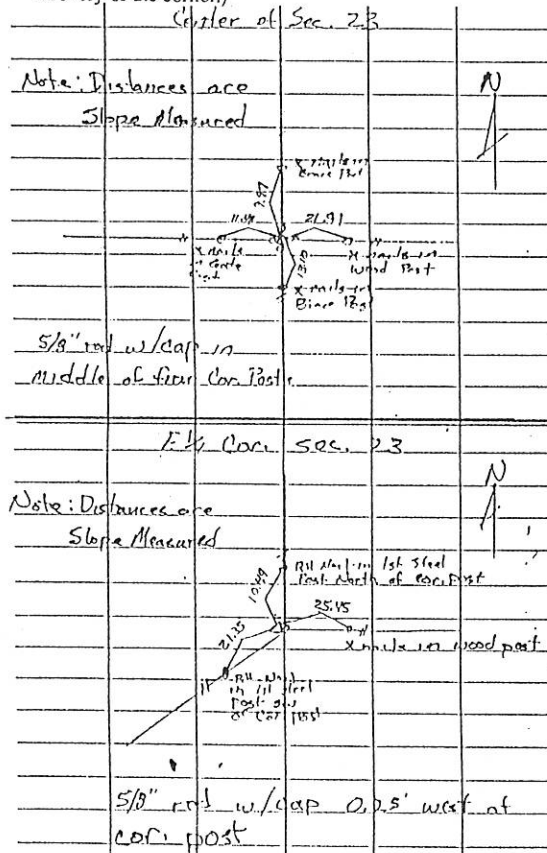 Center of Sec. 23
Note: Distances are
Slope Measured
N
X-nails in
Brace Post
7.87
21.91
X-nails
Post
X-nails in
Wood Post
13.10
X-nails in
Brace Post
5/8" rod w/cap in
middle of four Cor. Posts
E 1/4 Cor. Sec. 23
N
Note: Distances are
Slope Measured
Nail in 1st Steel
Post North of Cor. Post
10.49
25.45
21.35
X nails in wood post
Nail
in 1st steel
Post
of Cor. Post
5/8" rod w/cap west of
cor. post